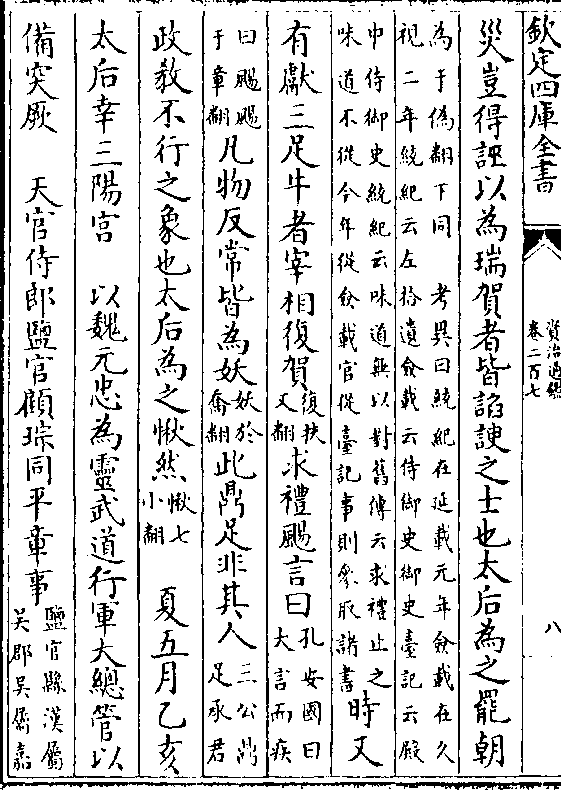 欽定四庫全書
資治通鑑
卷二百七
八
災豈得誣以為瑞賀者皆諂諛之士也太后為之罷朝
為于偽翻下同 考異曰統紀在延載元年僉載在久
視二年統紀云左拾遺僉載云侍御史御史臺記云殿
中侍御史統紀云味道無以對舊傳云求禮止之
味道不從今年從僉載官從臺記事則參取諸書
時又
有獻三足牛者宰相復賀
復扶
又翻
求禮颺言曰
孔安國曰
大言而疾
曰颺颺
于章翻
凡物反常皆為妖
妖於
喬翻
此鼎足非其人
三公鼎
足承君
政教不行之象也太后為之愀然
愀七
小翻
夏五月乙亥
太后幸三陽宮 以魏元忠為靈武道行軍大總管以
備突厥 天官侍郎鹽官顧琮同平章事
鹽官縣漢屬
吴郡吴屬嘉